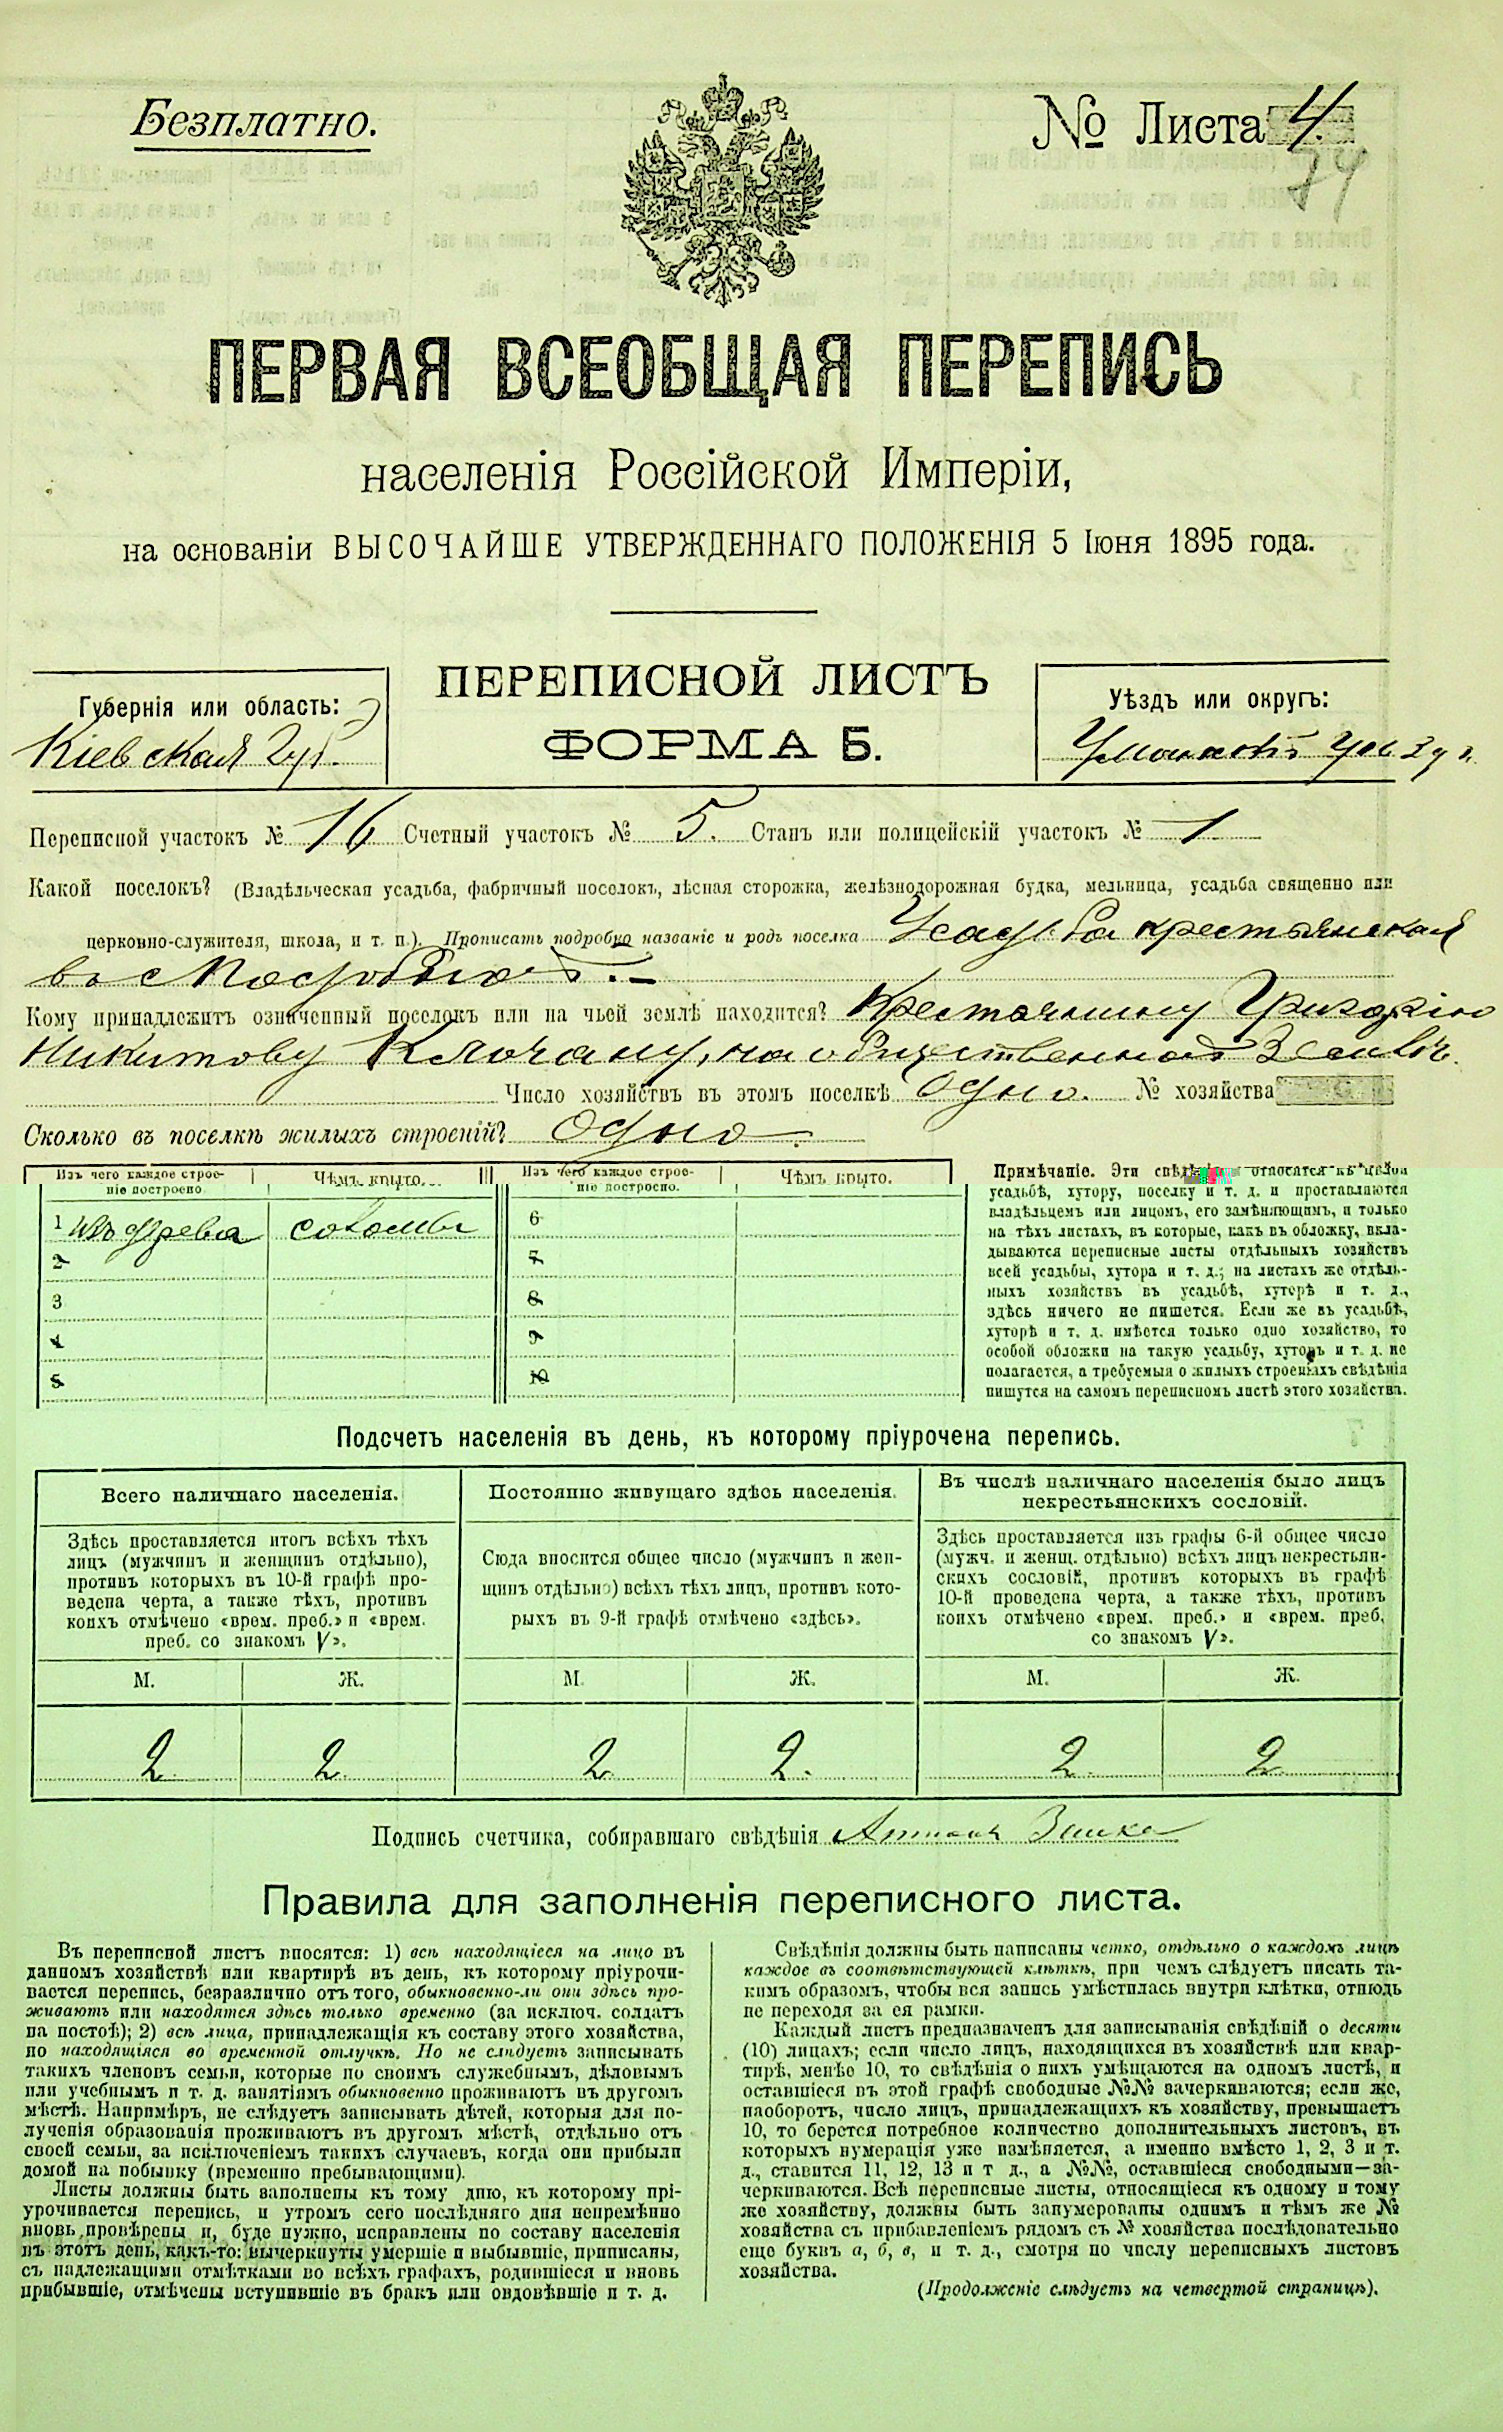 Безплатно.
№ Листа 4.
74
ПЕРВАЯ ВСЕОБЩАЯ ПЕРЕПИСЬ
населенія Россійской Имперіи,
на основаніи ВЫСОЧАЙШЕ УТВЕРЖДЕННАГО ПОЛОЖЕНІЯ 5 Іюня 1895 года.
ПЕРЕПИСНОЙ ЛИСТЪ
ФОРМА Б.
Губернія или область:
Кіевская Губ.
Уѣздъ или округъ:
Уманскій
Переписной участокъ № 16 Счетный участокъ № 5. Станъ или полицейскій участокъ № 1
Какой поселокъ? (Владѣльческая усадьба, фабричный поселокъ, лѣсная сторожка, желѣзнодорожная будка, мельница, усадьба священно или
церковно-служителя, школа, и т. п.). Прописать подробно названіе и родъ поселка Усадьба крестьянская
въ с
Кому принадлежитъ означенный поселокъ или на чьей землѣ находится? Крестьянину Григорію
Никитову Клочану, на общественной землѣ.
Число хозяйствъ въ этомъ поселкѣ Одно. № хозяйства
Сколько въ поселкѣ жилыхъ строеній? Одно.
Изъ чего каждое строе-
ніе построено
Чѣмъ крыто.
Изъ чего каждое строе-
ніе построено.
Чѣмъ крыто.
1 изъ дерева соломы
2
3
4
5
6
7
8
9
10
Примѣчаніе. Эти относятся къ цѣлой
усадьбѣ, хутору, поселку и т. д. и проставляются
владѣльцемъ или лицомъ, его замѣняющимъ, и только
на тѣхъ листахъ, въ которые, какъ въ обложку, вкла-
дываются переписные листы отдѣльныхъ хозяйствъ
всей усадьбы, хутора и т. д.; на листахъ же отдѣль-
ныхъ хозяйствъ въ усадьбѣ, хуторѣ и т. д.,
здѣсь ничего не пишется. Если же въ усадьбѣ,
хуторѣ и т. д. имѣется только одно хозяйство, то
особой обложки на такую усадьбу, хуторъ и т. д. не
полагается, а требуемыя о жилыхъ строеніяхъ свѣдѣнія
пишутся на самомъ переписномъ листѣ этого хозяйства.
Подсчетъ населенія въ день, къ которому пріурочена перепись.
Всего наличнаго населенія.
Здѣсь проставляется итогъ всѣхъ тѣхъ
лицъ (мужчинъ и женщинъ отдѣльно),
противъ которыхъ въ 10-й графѣ про-
ведена черта, а также тѣхъ, противъ
коихъ отмѣчено «врем. преб.» и «врем.
преб. со знакомъ V».
М. Ж.
2. 2.
Постоянно живущаго здѣсь населенія.
Сюда вносится общее число (мужчинъ и жен-
щинъ отдѣльно) всѣхъ тѣхъ лицъ, противъ кото-
рыхъ въ 9-й графѣ отмѣчено «здѣсь».
М. Ж.
2. 2.
Въ числѣ наличнаго населенія было лицъ
некрестьянскихъ сословій.
Здѣсь проставляется изъ графы 6-й общее число
(мужч. и женщ. отдѣльно) всѣхъ лицъ некрестьян-
скихъ сословій, противъ которыхъ въ графѣ
10-й проведена черта, а также тѣхъ, противъ
коихъ отмѣчено «врем. преб.» и «врем. преб.
со знакомъ V».
М. Ж.
2. 2.
Подпись счетчика, собиравшаго свѣдѣнія
Правила для заполненія переписного листа.
Въ переписной листъ вносятся: 1) всѣ находящіеся на лицо въ
данномъ хозяйствѣ или квартирѣ въ день, къ которому пріурочи-
вается перепись, безразлично отъ того, обыкновенно-ли они здѣсь про-
живаютъ или находятся здѣсь только временно (за исключ. солдатъ
на постоѣ); 2) всѣ лица, принадлежащія къ составу этого хозяйства,
но находящіяся во временной отлучкѣ. Но не слѣдуетъ записывать
такихъ членовъ семьи, которые по своимъ служебнымъ, дѣловымъ
или учебнымъ и т. д. занятіямъ обыкновенно проживаютъ въ другомъ
мѣстѣ. Напримѣръ, не слѣдуетъ записывать дѣтей, которыя для по-
лученія образованія проживаютъ въ другомъ мѣстѣ, отдѣльно отъ
своей семьи, за исключеніемъ такихъ случаевъ, когда они прибыли
домой на побывку (временно пребывающими).
Листы должны быть заполнены къ тому дню, къ которому прі-
урочивается перепись, и утромъ сего послѣдняго дня непремѣнно
вновь провѣрены и, буде нужно, исправлены по составу населенія
въ этотъ день, какъ-то: вычеркнуты умершіе и выбывшіе, приписаны,
съ надлежащими отмѣтками во всѣхъ графахъ, родившіеся и вновь
прибывшіе, отмѣчены вступившіе въ бракъ или овдовѣвшіе и т. д.
Свѣдѣнія должны быть написаны четко, отдѣльно о каждомъ лицѣ
каждое въ соотвѣтствующей клѣткѣ, при чемъ слѣдуетъ писать та-
кимъ образомъ, чтобы вся запись умѣстилась внутри клѣтки, отнюдь
не переходя за ея рамки.
Каждый листъ предназначенъ для записыванія свѣдѣній о десяти
(10) лицахъ; если число лицъ, находящихся въ хозяйствѣ или квар-
тирѣ, менѣе 10, то свѣдѣнія о нихъ умѣщаются на одномъ листѣ, и
оставшіеся въ этой графѣ свободные №№ зачеркиваются; если же,
наоборотъ, число лицъ, принадлежащихъ къ хозяйству, превышаетъ
10, то берется потребное количество дополнительныхъ листовъ, въ
которыхъ нумерація уже измѣняется, а именно вмѣсто 1, 2, 3 и т.
д., ставится 11, 12, 13 и т д., а №№, оставшіеся свободными—за-
черкиваются. Всѣ переписные листы, относящіеся къ одному и тому
же хозяйству, должны быть занумерованы однимъ и тѣмъ же №
хозяйства съ прибавленіемъ рядомъ съ № хозяйства послѣдовательно
еще буквъ а, б, в, и т. д., смотря по числу переписныхъ листовъ
хозяйства.
(Продолженіе слѣдуетъ на четвертой страницѣ).